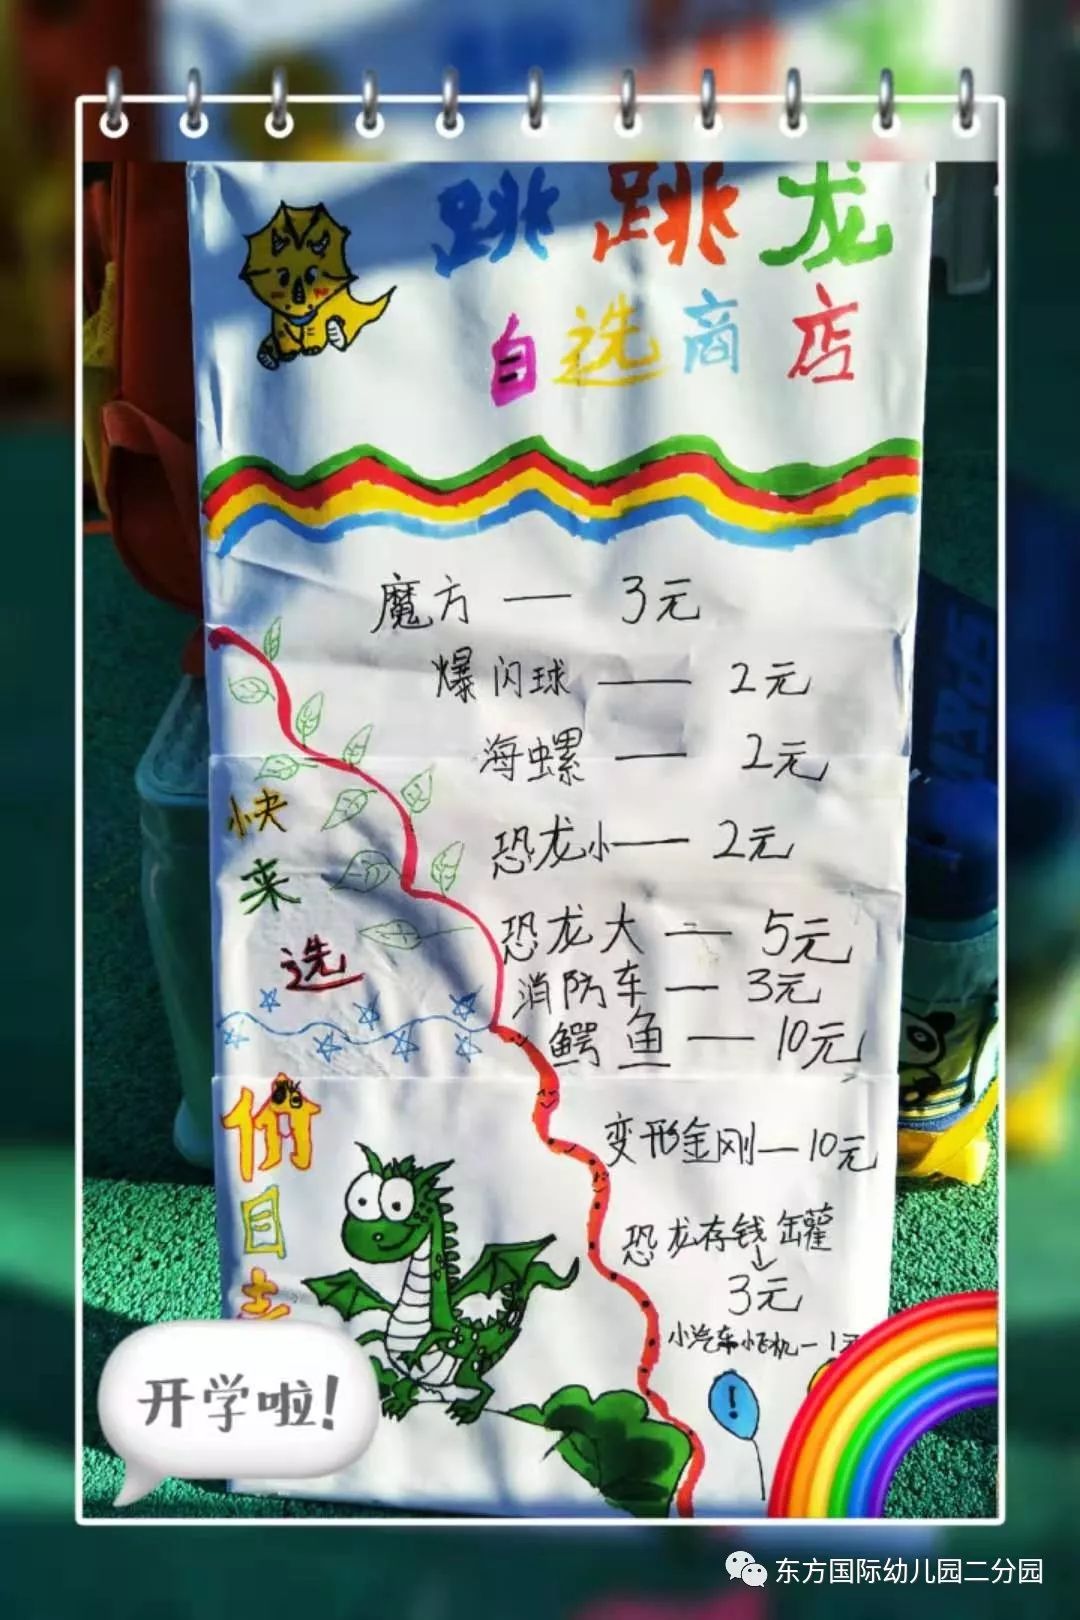 跳跳龙
自选商店
魔方 — 3元
爆闪球 — 2元
海螺 — 2元
恐龙小 — 2元
恐龙大 — 5元
消防车 — 3元
鳄鱼 — 10元
变形金刚 — 10元
恐龙存钱罐
↓
3元
小汽车小飞机 — 1元
快来选
价目表
!
开学啦!
东方国际幼儿园二分园